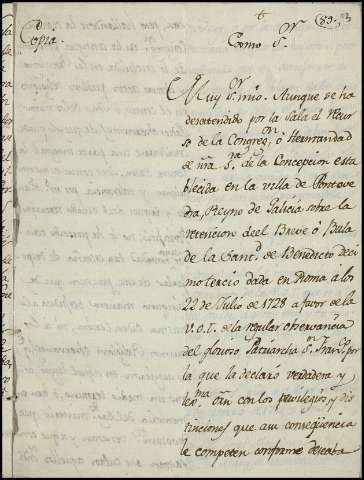 (89.)
Copia.
Exmo Sr.
Muy Sr. mio. Aunque se ha
desatendido por la Sala el Recur
so de la Congregn. ò Hermandad
de ñra Sra. de la Concepcion esta
blecida en la villa de Ponteve
dra, Reyno de Galicia sobre la
retencion de el Breve ò Bula
de la Santd. de Benedicto deci
mo tercio dada en Roma a los
22 de Julio de 1728 a favor de la
V. O. T. de la regular observancia
del glorioso Patriarcha Sn. Franco. por
la que la declarò verdadera y
con los privilegios, y dis
tinciones que en conseqüencia
le competen conforme deseaba